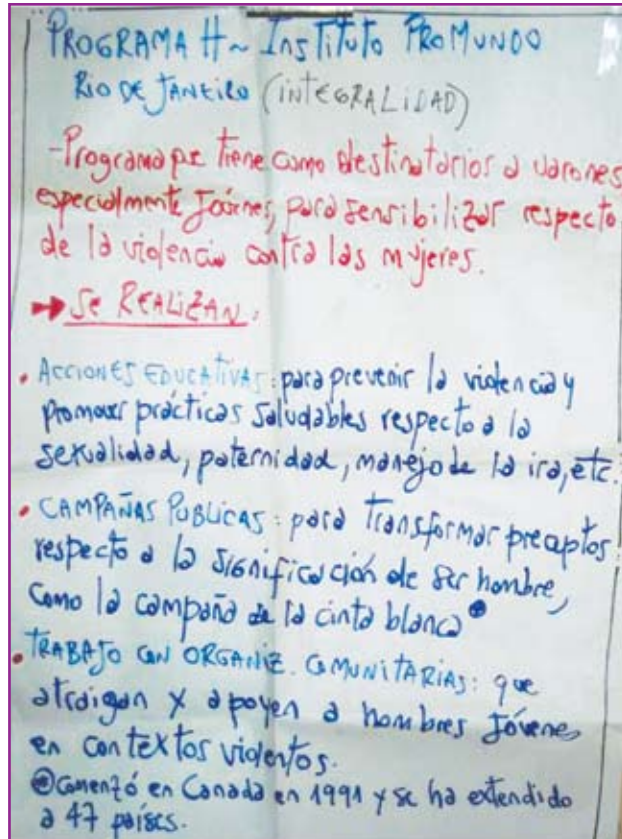 PROGRAMA H ~ INSTITUTO PROMUNDO
RIO DE JANEIRO (INTEGRALIDAD)
- Programa que tiene como destinatarios a varones
especialmente jóvenes, para sensibilizar respecto
de la violencia contra las mujeres.
→ SE REALIZAN:
• ACCIONES EDUCATIVAS: para prevenir la violencia y
promover prácticas saludables respecto a la
sexualidad, paternidad, manejo de la ira, etc.
• CAMPAÑAS PUBLICAS: para transformar preceptos
respecto a la significación de ser hombre,
como la campaña de la cinta blanca
• TRABAJO CON ORGANIZ. COMUNITARIAS: que
atraigan y apoyen a hombres jóvenes
en contextos violentos.
Comenzó en Canada en 1991 y se ha extendido
a 47 países.